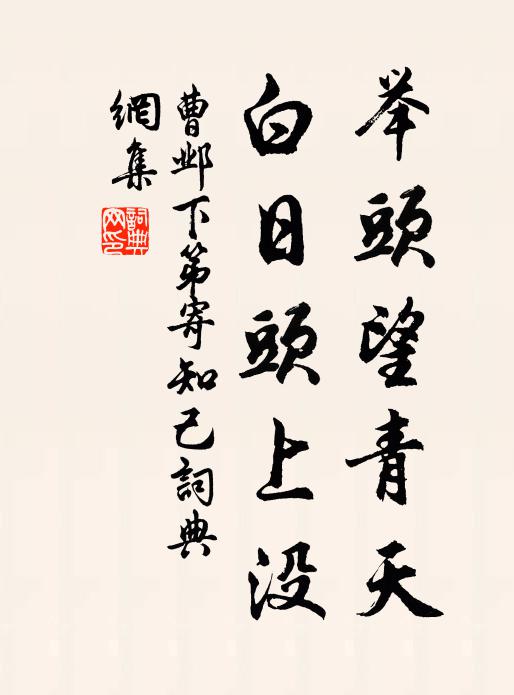 举頭望青天
白日頭上没
曹邺下第寄知己詞典
網集
詞典
网印